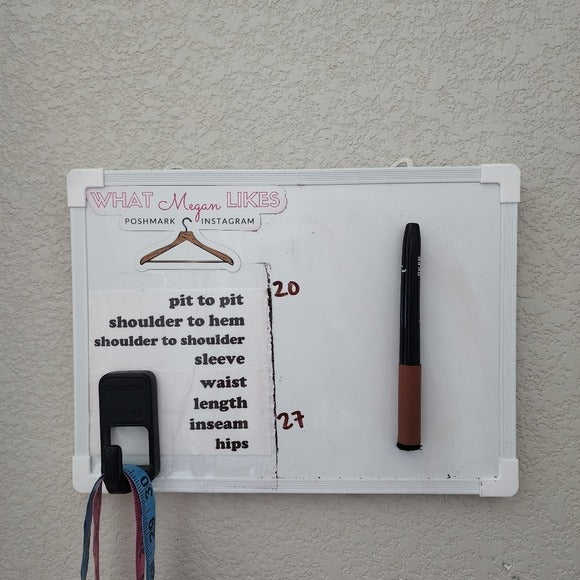 WHAT Megan LIKES
POSHMARK INSTAGRAM
pit to pit 20
shoulder to hem
shoulder to shoulder
sleeve
waist
length
inseam 27
hips